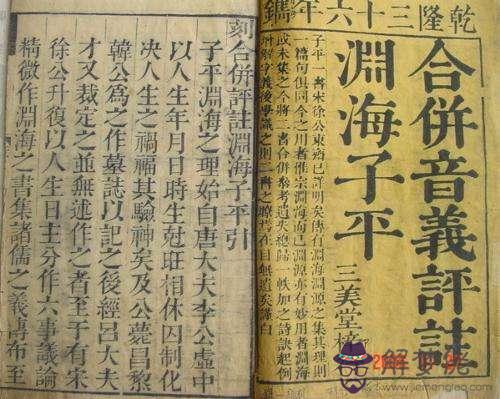 乾隆三十六年鐫
合併音義評註
淵海子平
三美堂梓
子平一書宋徐公東齋已詳明矣傳有淵海淵源之集其理則
一篇句俱同今之用者惟宗淵海而已淵源亦有妙用者淵海
或未集之今將二書合併參考遺失總歸一帙加之詩訣起例
解字義後學識之則二書之在目無遺矣謹白
刻合併評註淵海子平引
子平淵海之理始自唐大夫李公虛中
以人生年月日時生尅旺相休囚制化
決人生之禍福其驗神矣及公薨昌黎
韓公為之作墓誌以記之後經呂大夫
才又裁定之並無述作之者至于有宋
徐公升復以人生日主分作六事議論
精微作淵海之書集諸儒之義傳布至
解梦佬
www.jiemenglao.com